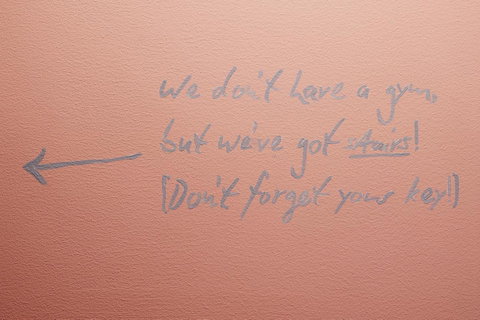 We don't have a gym,
but we've got stairs!
(Don't forget your key!)